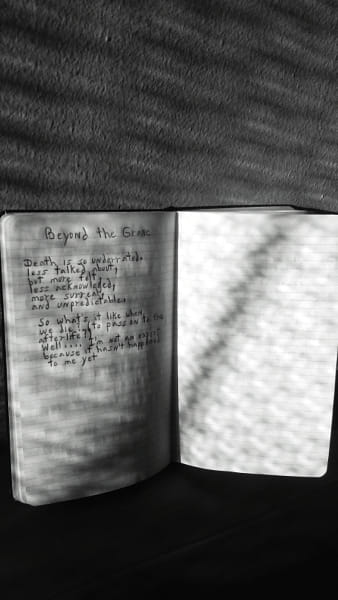 Beyond the Grave
Death is so underrated,
less talked about,
but more felt,
less acknowleded,
more surreal,
and unpredictable.
So what's it like when
we die? (to pass on to the
afterlife?)
Well.... I'm not an expert
because it hasn't happened
to me yet